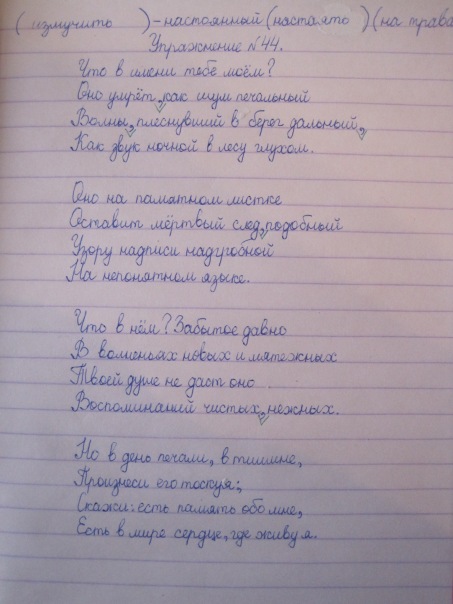 ( измучить ) - настоянный (настоять) (на трава
Упражнение № 44.
Что в имени тебе моём?
Оно умрёт, как шум печальный
Волны, плеснувший в берег дальный,
Как звук ночной в лесу глухом.
Оно на памятном листке
Оставит мёртвый след, подобный
Узору надписи надгробной
На непонятном языке.
Что в нём? Забытое давно
В волненьях новых и мятежных
Твоей душе не даст оно
Воспоминаний чистых, нежных.
Но в день печали, в тишине,
Произнеси его тоскуя;
Скажи: есть память обо мне,
Есть в мире сердце, где живу я.